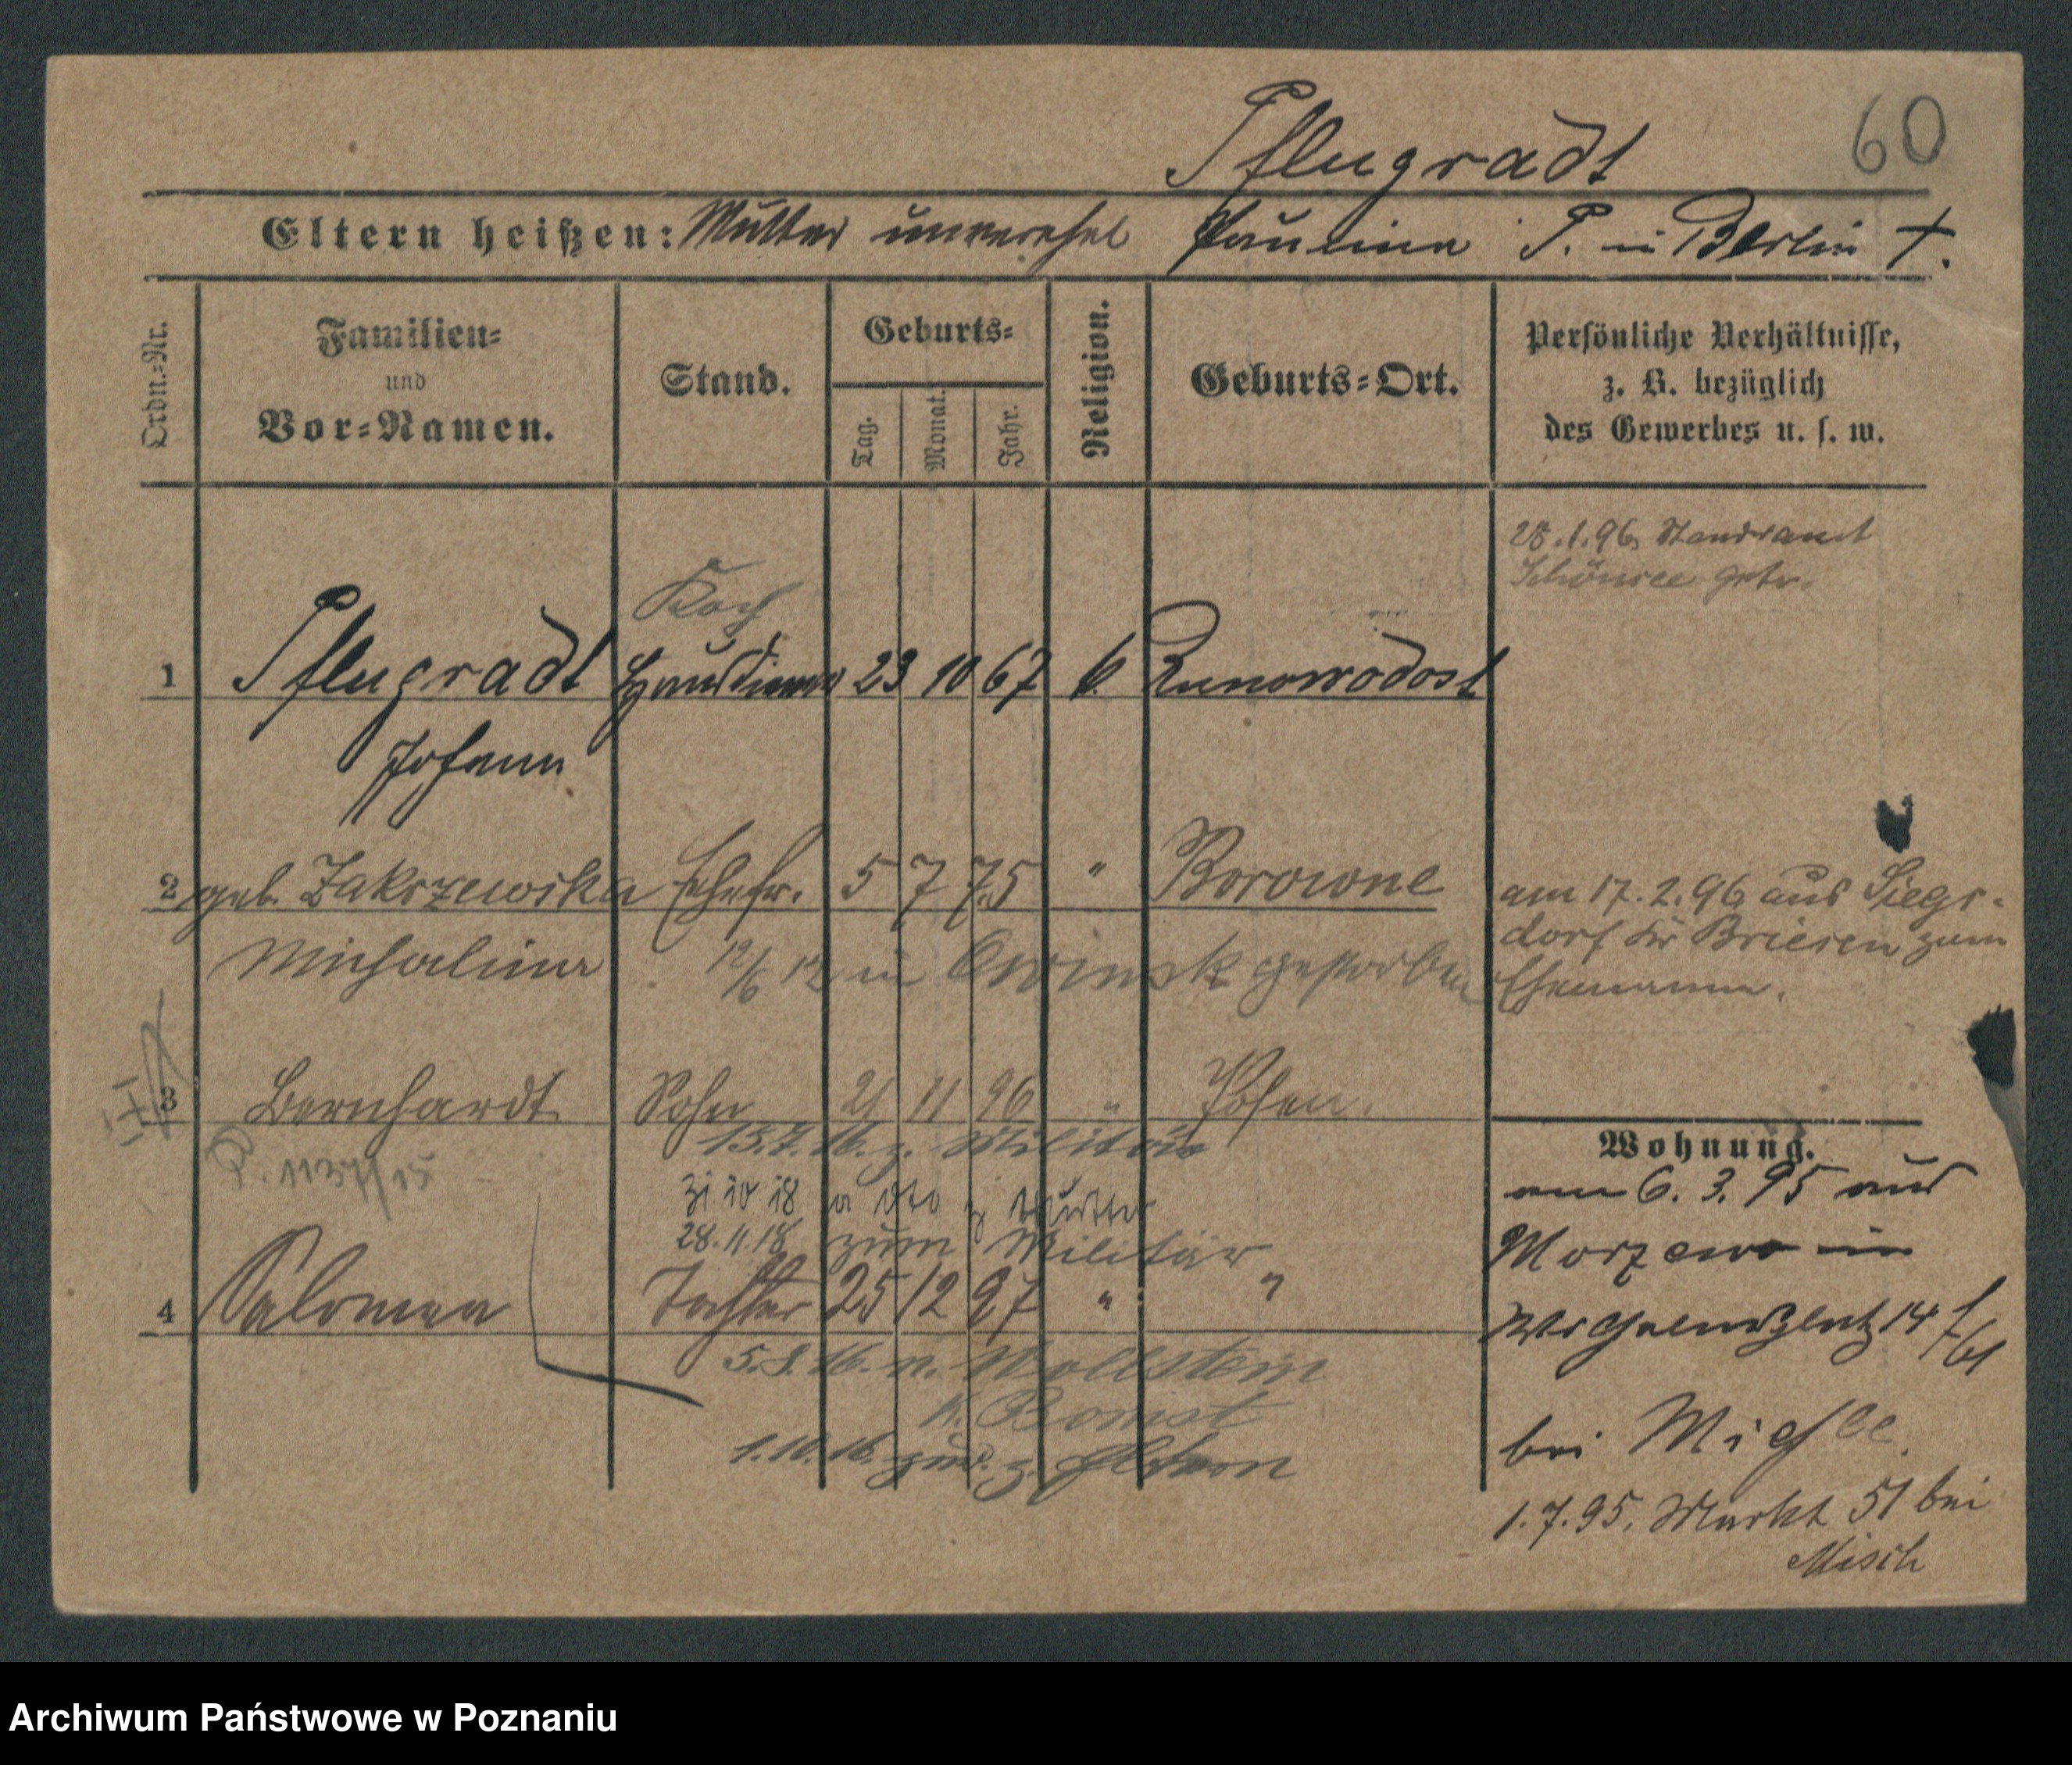 60
Pflugradt
Eltern heißen: Mutter unverehel Paulina P. in Berlin †.
Ordn.-Nr.
Familien-
und
Vor-Namen.
Stand.
Geburts-
Tag. Monat. Jahr.
Religion.
Geburts-Ort.
Persönliche Verhältnisse,
z. B. bezüglich
des Gewerbes u. s. w.
28.1.96 Standesamt
Schönsee getr.
Koch
1 Pflugradt Hausdiener 23 10 67 k.
Johann
2 geb. Zakrzewska Ehefr. 5 7 75 " Borowne
Michalina 12/6 12 in Owinsk gestorben
am 17.2.96 aus Siegs-
dorf Kr Briesen zum
Ehemann.
3 Bernhardt Sohn 21 11 96 " Posen.
15.7.16. z. Militär
P. 1137/15
31 10 18 a z Mutter
28.11.18 zum Militär
4 Salomea Tochter 25 12 97 " "
5.8.16. n. Wollstein
K. Bomst
1.10.16. zur. z. Eltern
Wohnung.
am 6. 3. 95 aus
Morzewo in
Wilhelmsplatz 14
bei
1.7.95. Markt 51 bei
Misch
Archiwum Państwowe w Poznaniu